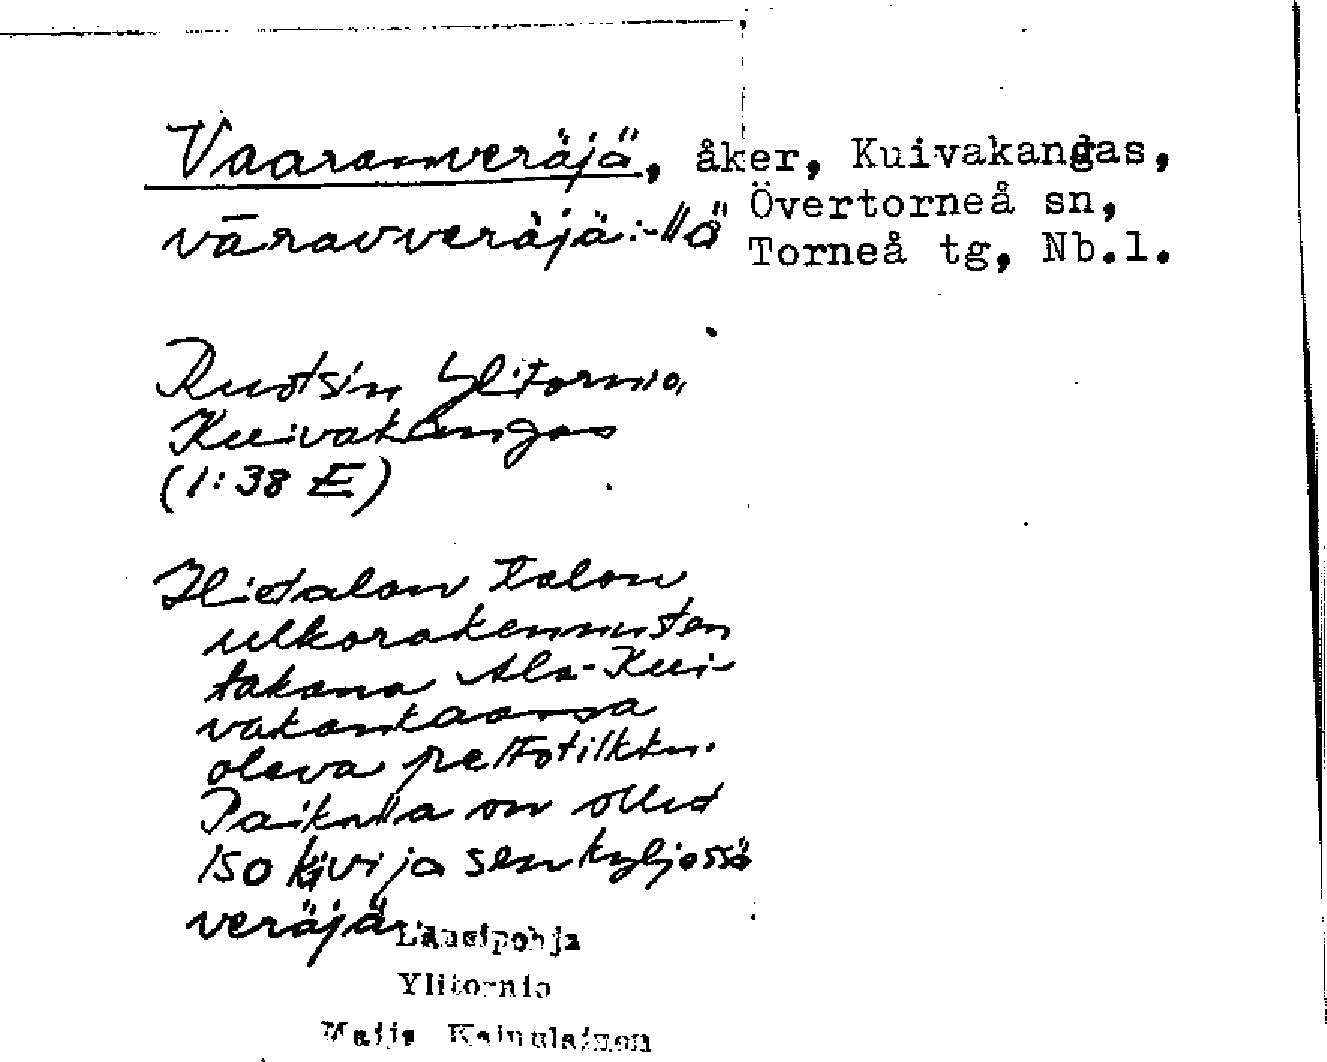 Vaaranveräjä, åker, Kuivakangas,
Övertorneå sn,
vāravveräjä:-llä
Torneå tg, Nb.l.
Ruotsin Ylitornio,
Kuivakangas
(1:38 E)
Hietalan talon
ulkorakennusten
takana Ala-Kui-
vakankaassa
oleva peltotilkku.
Paikalla on ollut
iso kivi ja sen kyljessä
veräjä.
Länsipohja
Ylitornio
Maija Kainulainen